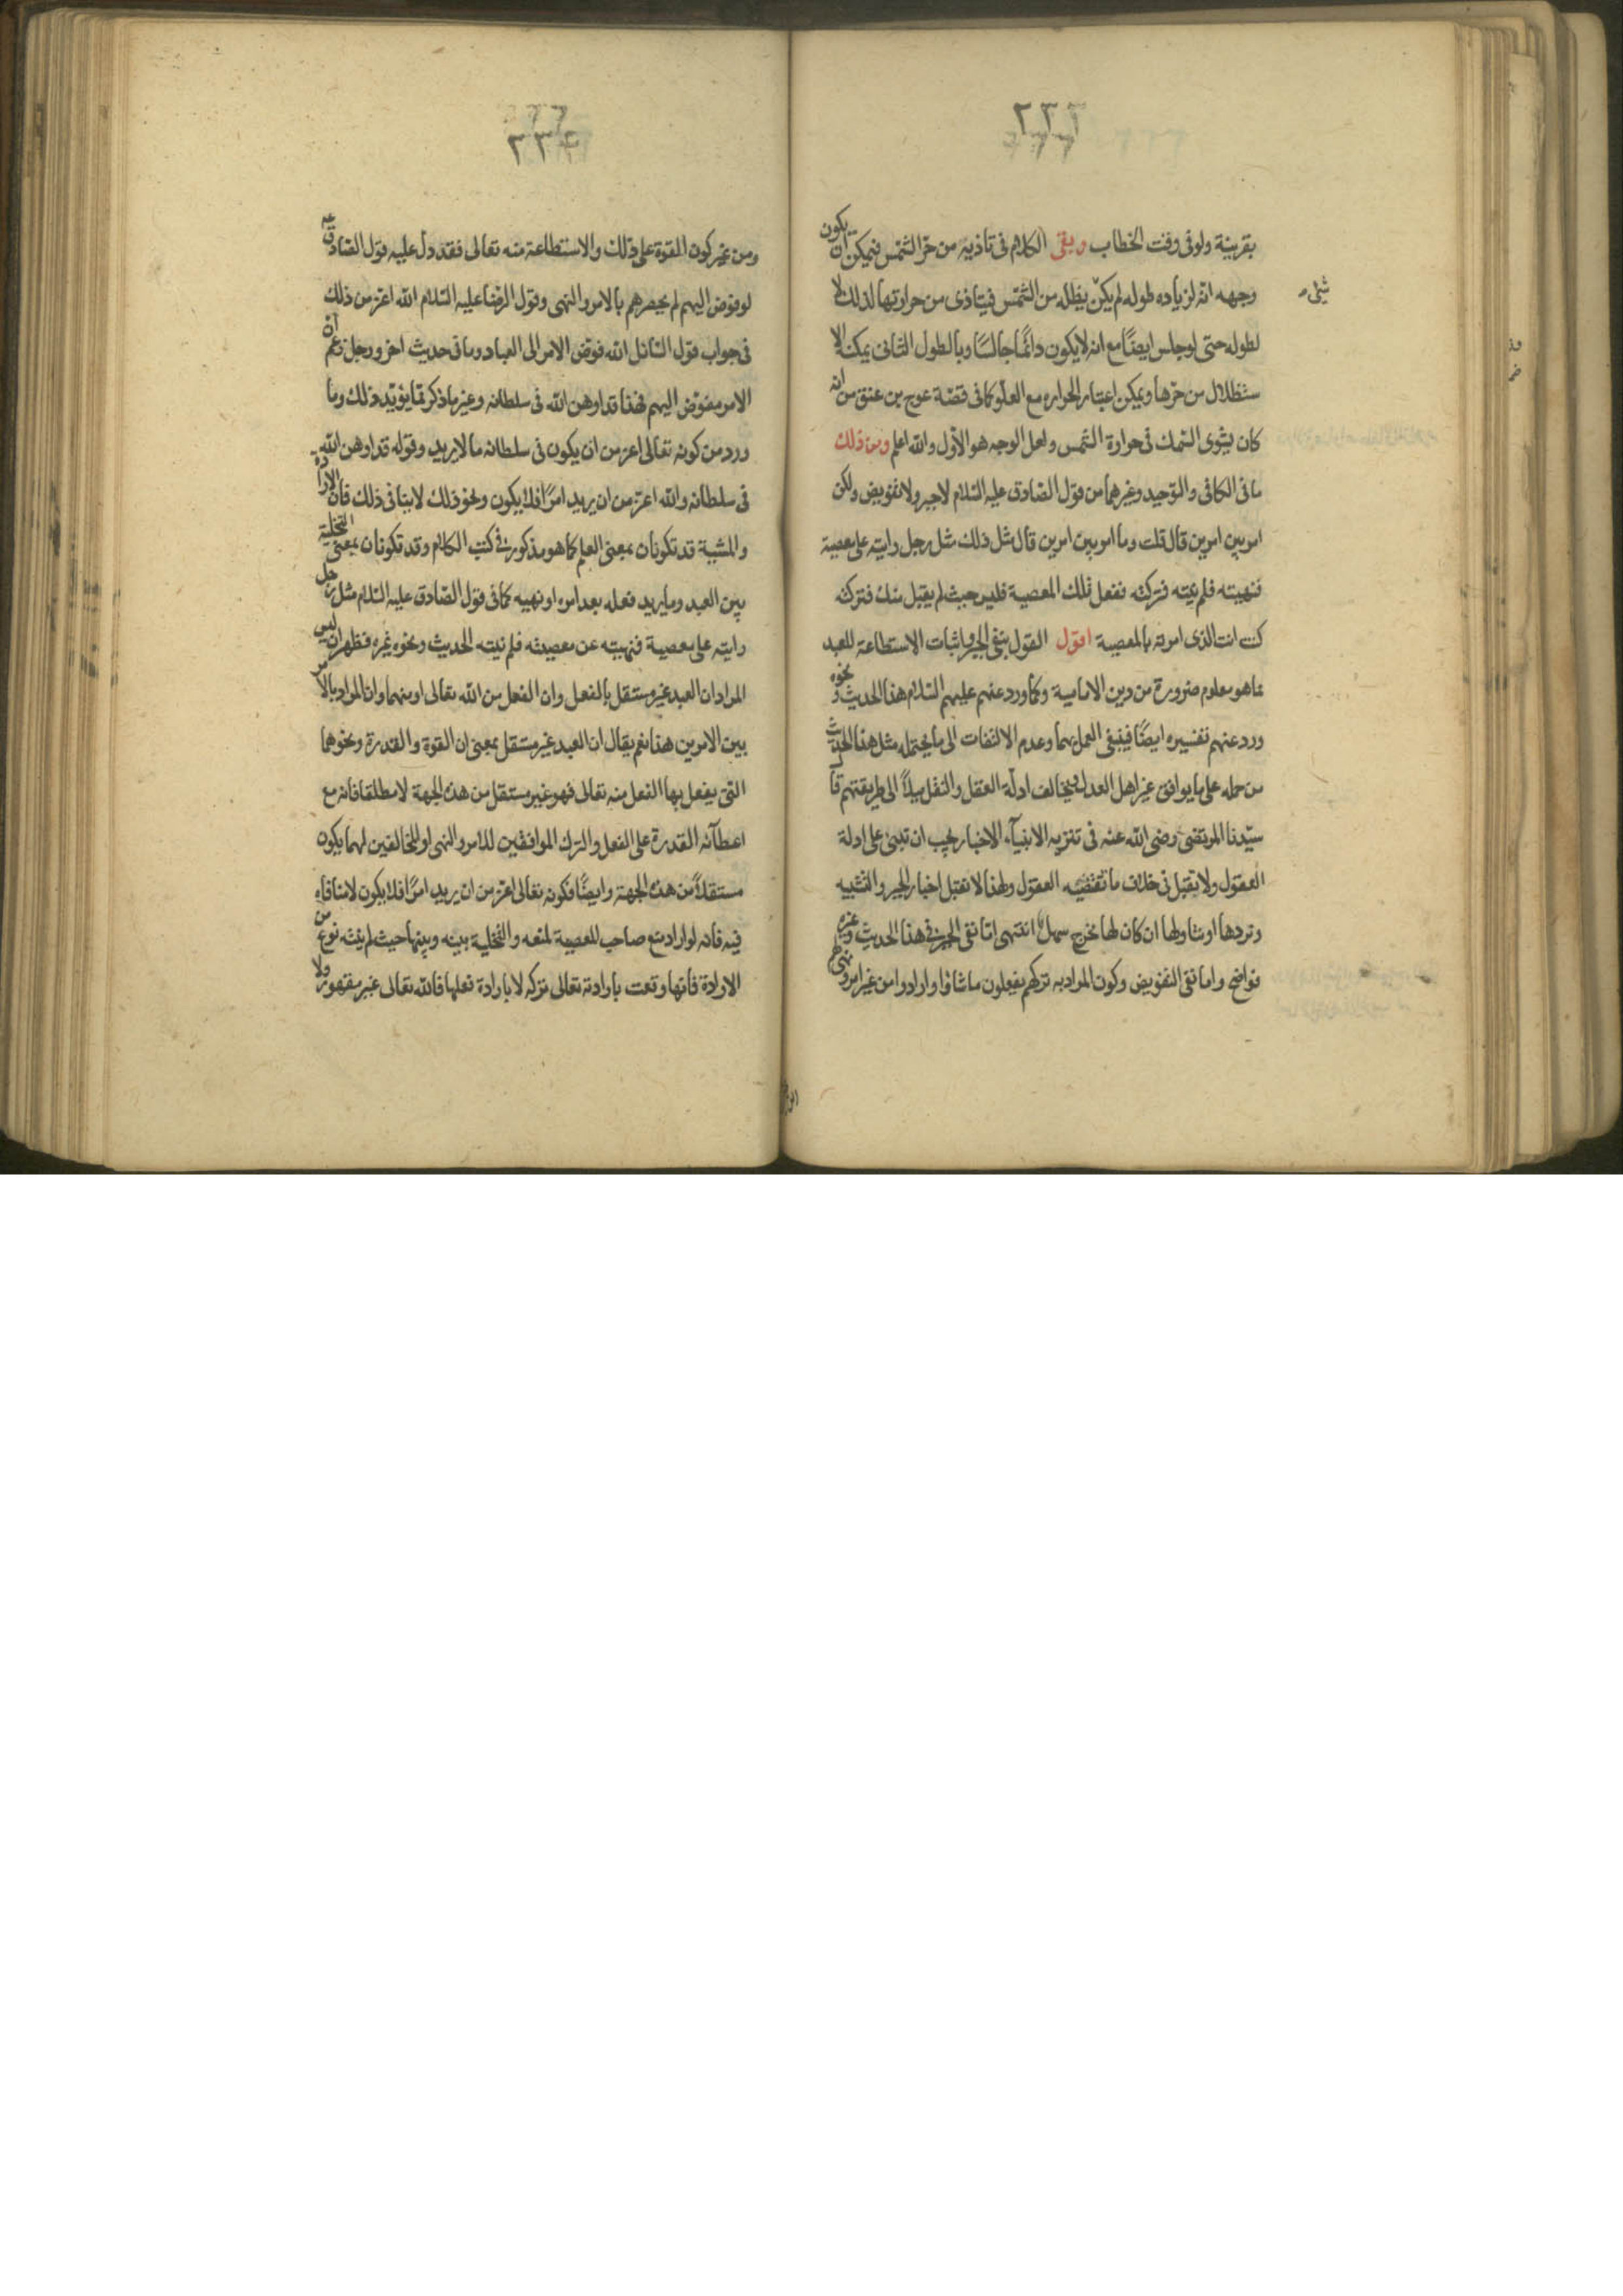 ٢٣٢
بقرينة ولو فى وقت الخطاب وبقى الكلام فى تاذيه من حرّ الشمس فيمكن ان يكون
وجهه انّه لزياده طوله لم يكن يظلّه من الشمس فيتاذى من حرارتها لذلك لا
لطوله حتى لو جلس ايضًا مع انه لا يكون دائمًا جالسًا وبالطول الثانى يمكنه الا
ستظلال من حرّها ويمكن اعتبار الحراره مع العلو كما فى قصّة عوج بن عنق من انه
كان يشوى السّمك فى حرارة الشمس ولعل الوجه هو الاوّل والله اعلم ومن ذلك
ما فى الكافى والتوحيد وغيرهما من قول الصّادق عليه السّلام لا جبر ولا تفويض ولكن
امر بين امرين قال قلت وما امر بين امرين قال مثل ذلك مثل رجل رايته على معصية
فنهيته فلم ينته فتركته ففعل تلك المعصية فليس حيث لم يقبل منك فتركته
كنت انت الذى امرته بالمعصية اقول القول بنفى الجبر واثبات الاستطاعة للعبد
مما هو معلوم ضرورة من دين الامامية وكما ورد عنهم عليهم السّلام هذا الحديث ونحوه
ورد عنهم تفسيره ايضًا فينبغى العمل بهما وعدم الالتفات الى ما يحتمله مثل هذا الحديث
من حمله على ما يوافق غير اهل العدل ويخالف ادلّة العقل والنقل ميلاً الى طريقتهم قال
سيّدنا المرتضى رضى الله عنه فى تنزيه الانبيآء الاخبار يجب ان تبنى على ادلة
العقول ولا يقبل فى خلاف ما تقتضيه العقول ولهذا لا نقبل اخبار الجبر والتشبيه
ونردها او نتاولها ان كان لها مخرج سهل انتهى امّا نفى الجبر فى هذا الحديث وغيره
فواضح واما نفى التفويض وكون المراد به تركهم يفعلون ما شاؤا وارادوا من غير امر ونهيهم
ومن غير كون القوة على ذلك والاستطاعة منه تعالى فقد دل عليه قول الصّادق عه
لو فوّض اليهم لم يحصرهم بالامر والنهى وقول الرضا عليه السّلام الله اعز من ذلك
فى جواب قول السّائل الله فوّض الامر الى العباد وما فى حديث اخر ورجل زعم ان
الامر مفوّض اليهم فهذا قد اوهن الله فى سلطانه وغير ما ذكر ممّا يؤيّد ذلك وما
ورد من كونه تعالى اعز من ان يكون فى سلطانه ما لا يريد وقوله قد اوهن الله
فى سلطانه والله اعزّ من ان يريد امرًا فلا يكون ونحو ذلك لا ينافى ذلك فان الارادة
والمشية قد تكونان بمعنى العلم كما هو مذكور فى كتب الكلام وقد تكونان بمعنى التخلية
بين العبد وما يريد فعله بعد امره او نهيه كما فى قول الصّادق عليه السّلام مثل رجل
رايته على معصية فنهيته عن معصيته فلم ينته الحديث ونحوه غيره فظهر ان ليس
المراد ان العبد غير مستقل بالفعل وان الفعل من الله تعالى او منهما وان المراد بالامر
بين الامرين هذا نعم يقال ان العبد غير مستقل بمعنى ان القوة والقدرة ونحوهما
التى يفعل بها الفعل منه تعالى فهو غير مستقل من هذه الجهة لا مطلقا فانه مع
اعطآئه القدرة على الفعل والترك الموافقين للامر والنهى او المخالفين لهما يكون
مستقلاً من هذه الجهة وايضًا فكونه تعالى اعزّ من ان يريد امرًا فلا يكون لا منافاه
فيه فانه لو اراد منع صاحب المعصية لمنعه والتخلية بينه وبينها حيث لم ينته نوع من
الارادة فانها وقعت بارادته تعالى تركه لا بارادة فعلها فالله تعالى غير مقهور ولا